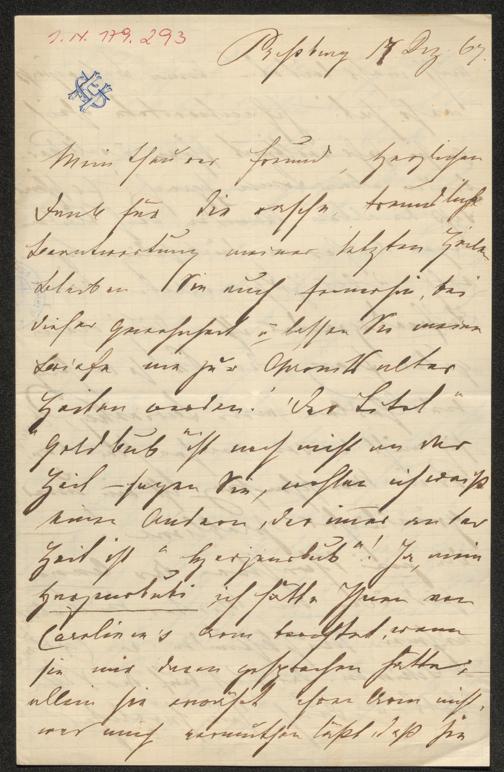 J. N. 179.293
Pressburg 17 Dez. 67.
Mein theurer Freund, herzlichen
Dank für die rasche, freundliche
Beantwortung meiner letzten Zeilen
bleiben Sie auch fernerhin, bei
dieser Gewohnheit u lassen Sie meine
Briefe nie zur Chronik alter
Zeiten werden! Der Titel "
"Goldbub" ist noch nicht an der
Zeit – sagen Sie, wohlan ich weiß
einen Andern, der immer an der
Zeit ist "Herzensbub"! Ja, mein
Herzensbub, ich hätte Ihnen von
Carolinen's berichtet, wenn
sie mir davon gesprochen hätte;
allein sie erwähnt nicht,
was mich vermuthen läßt, daß sie